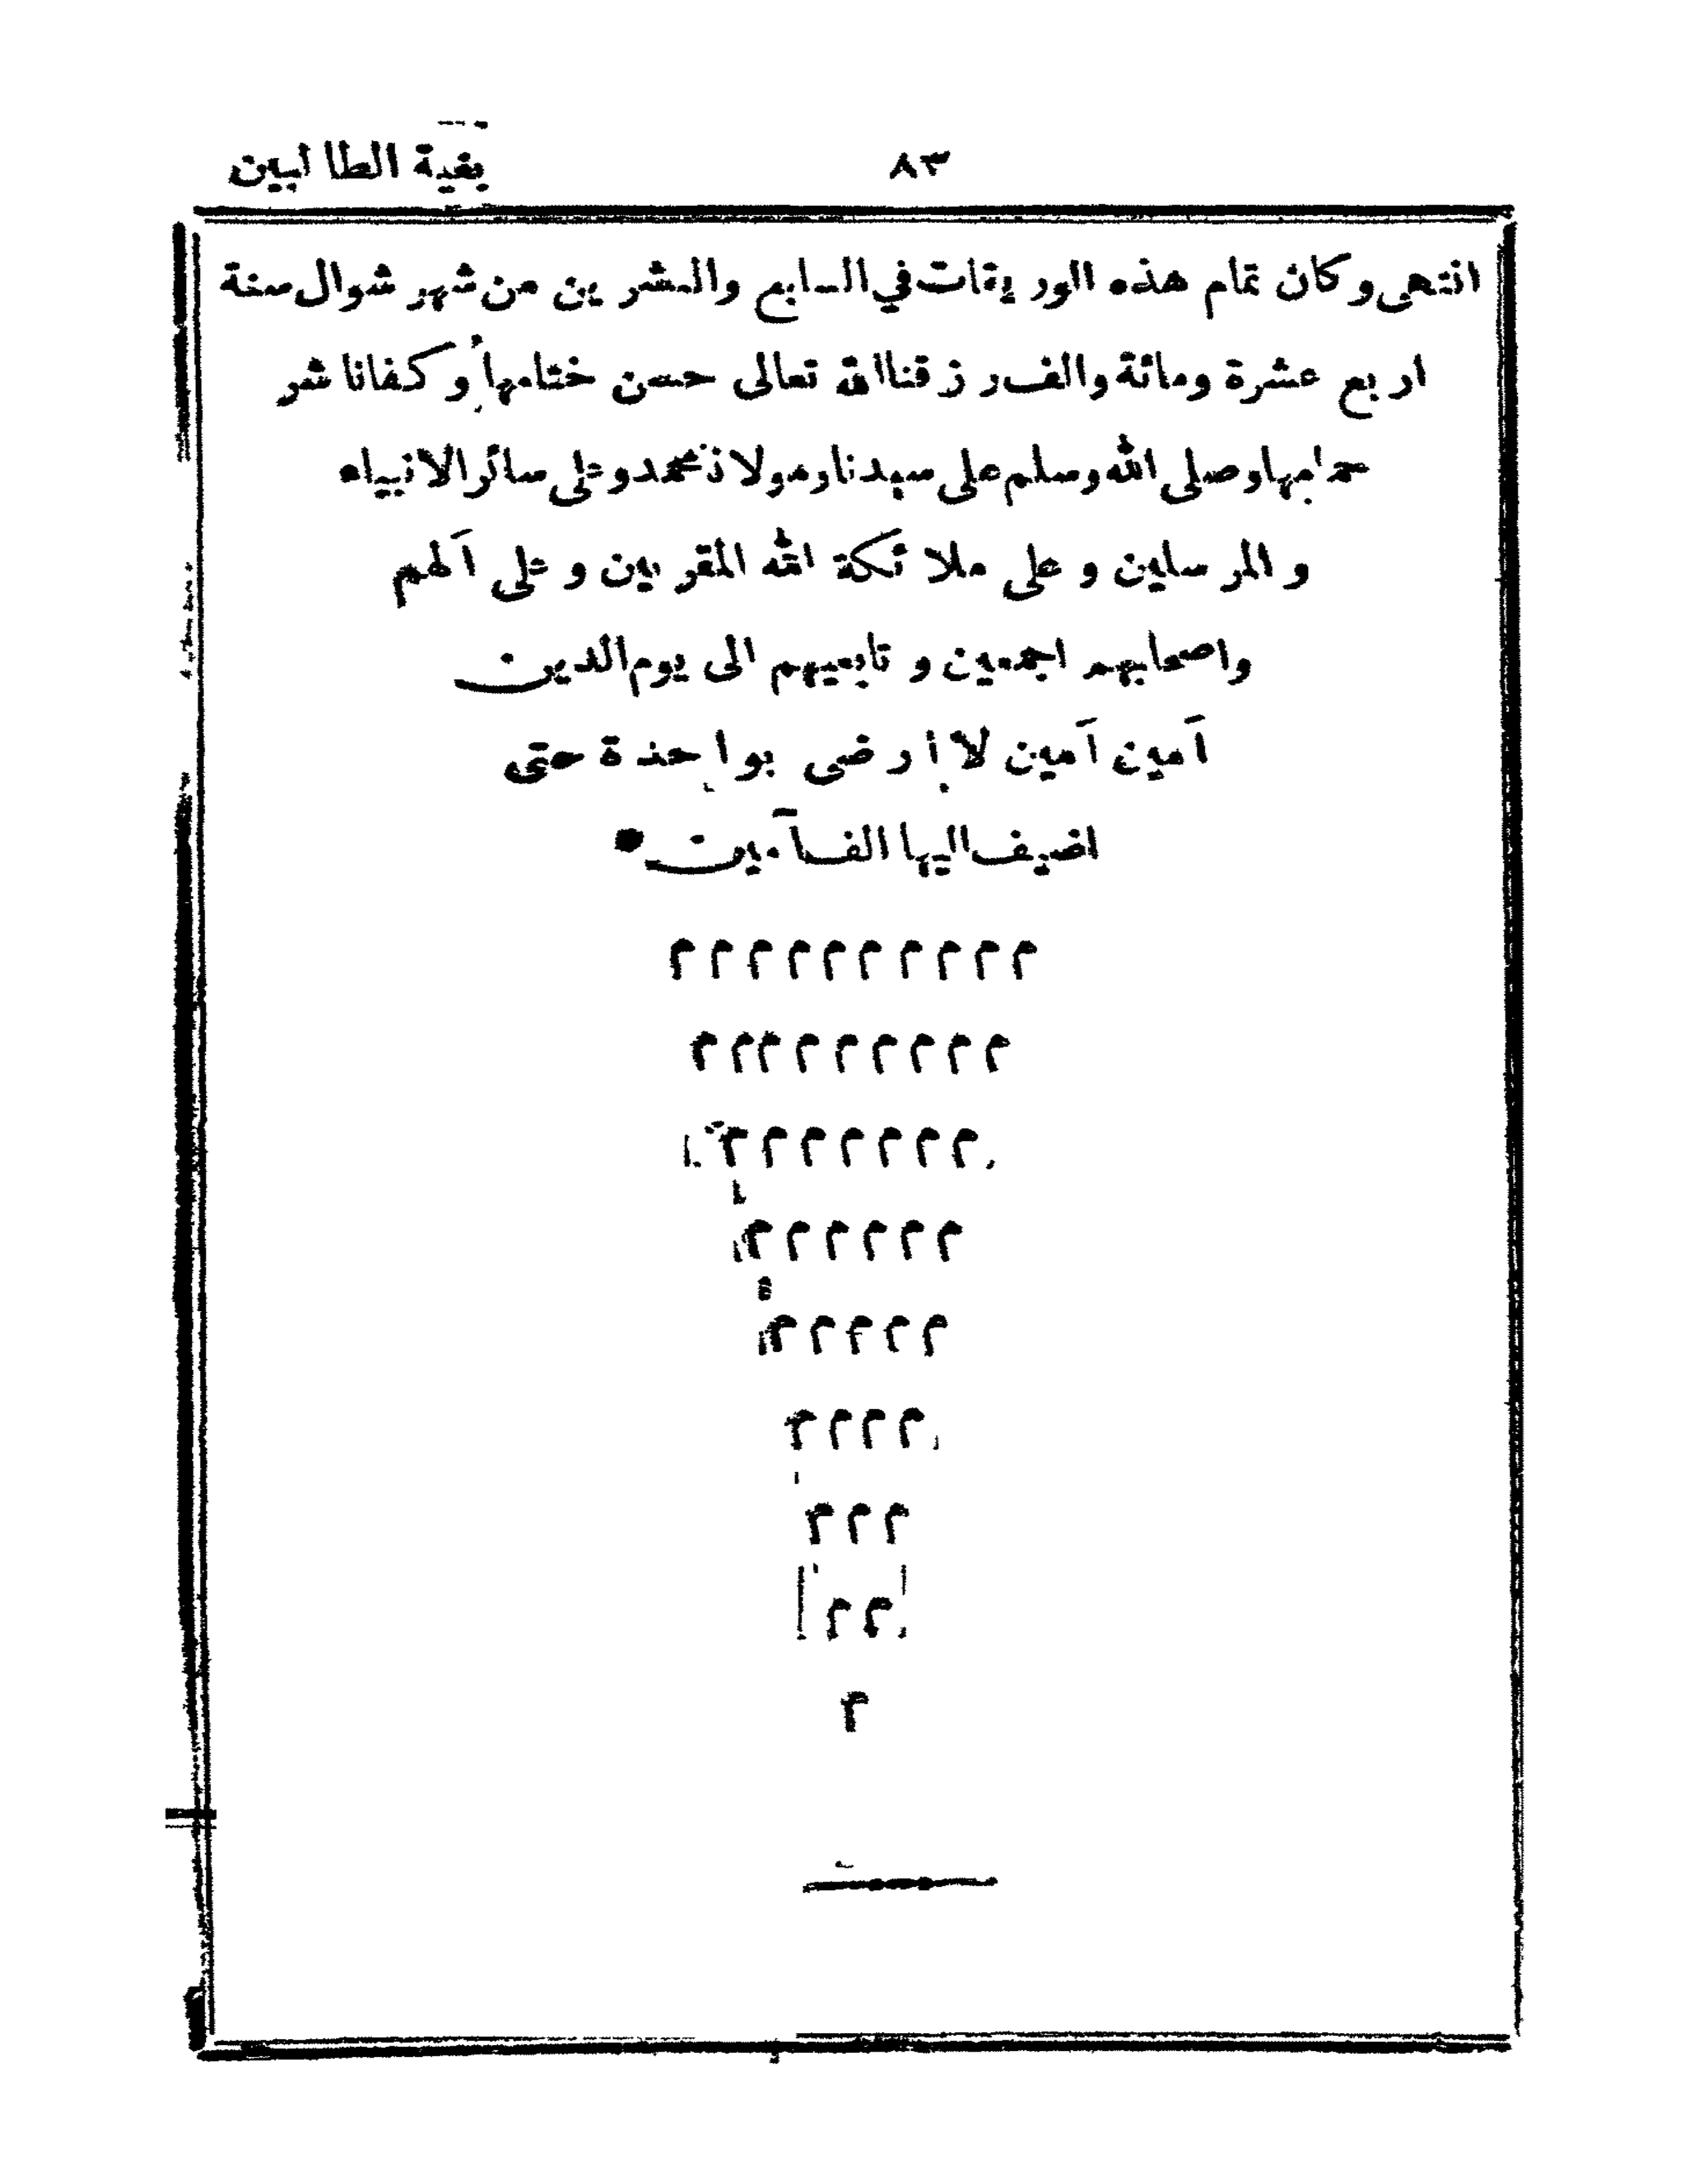 ٨٣ بغية الطالبين
انتهى وكان تمام هذه الوريقات في السابع والعشرين من شهر شوال سنة
اربع عشرة ومائة والف رزقنا الله تعالى حسن ختامها وكفانا شر
حمامها وصلى الله وسلم على سيدنا ومولانا محمد وعلى سائر الانبياء
و المرسلين و على ملائكة الله المقربين و على آلهم
واصحابهم اجمعين و تابعيهم الى يوم الدين
آمين آمين لا أرضى بواحدة حتى
اضيف اليها الف آمين
م م م م م م م م م م
م م م م م م م م م
م م م م م م م
م م م م م م
م م م م م
م م م م
م م م
م م
م